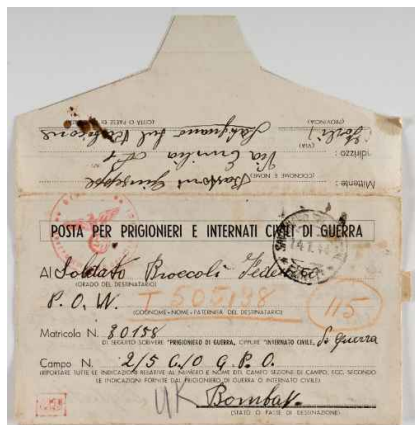 (PROVINCIA)
(CITTÀ O PAESE E)
(Forlì) Savignano sul Rubicone
(VIA)
Indirizzo: Via Emilia N°
(COGNOME E NOME)
Mittente: Bastoni Giuseppe
POSTA PER PRIGIONIERI E INTERNATI CIVILI DI GUERRA
Al Soldato Broccoli Federico
(GRADO DEL DESTINATARIO)
P.O.W. T 505198
(COGNOME - NOME - PATERNITÀ DEL DESTINATARIO)
115
Matricola N. 80158
DI SEGUITO SCRIVERE "PRIGIONIERO DI GUERRA, OPPURE "INTERNATO CIVILE, di Guerra
Campo N. 2/5 C/O G.P.O.
(RIPORTARE TUTTE LE INDICAZIONI RELATIVE AL NUMERO E NOME DEL CAMPO SEZIONE DI CAMPO, ECC. SECONDO
LE INDICAZIONI FORNITE DAL PRIGIONIERO DI GUERRA O INTERNATO CIVILE)
UK Bombay
(STATO O PAESE DI DESTINAZIONE)